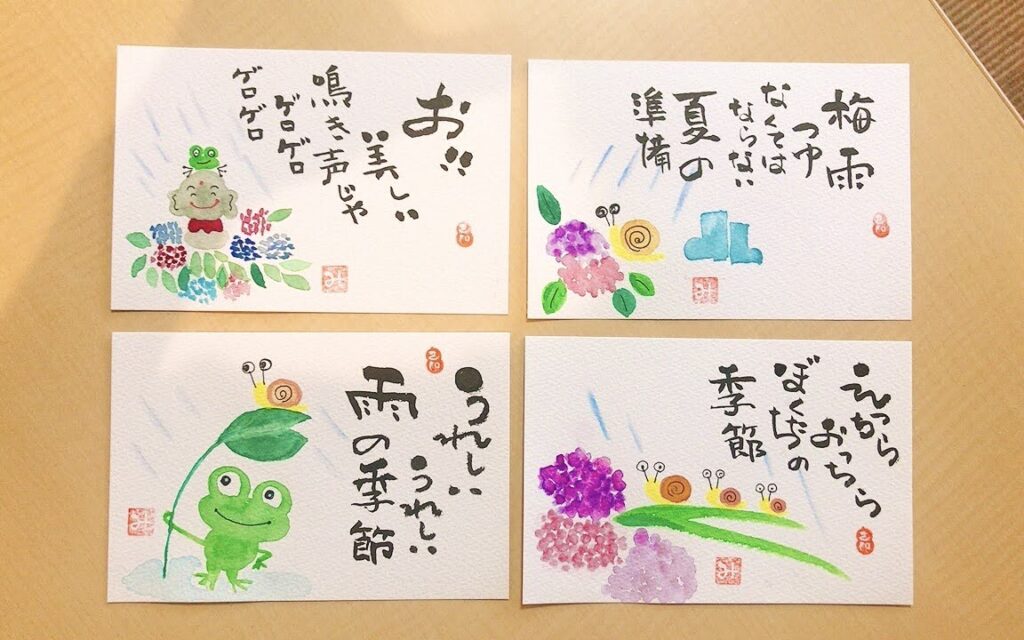 お!!
美しい
鳴き声じゃ
ゲロゲロ
ゲロゲロ
梅雨
つゆ
なくては
ならない
夏の
準備
うれしい
うれしい
雨の季節
えっちら
おっちら
ぼくたちの
季節